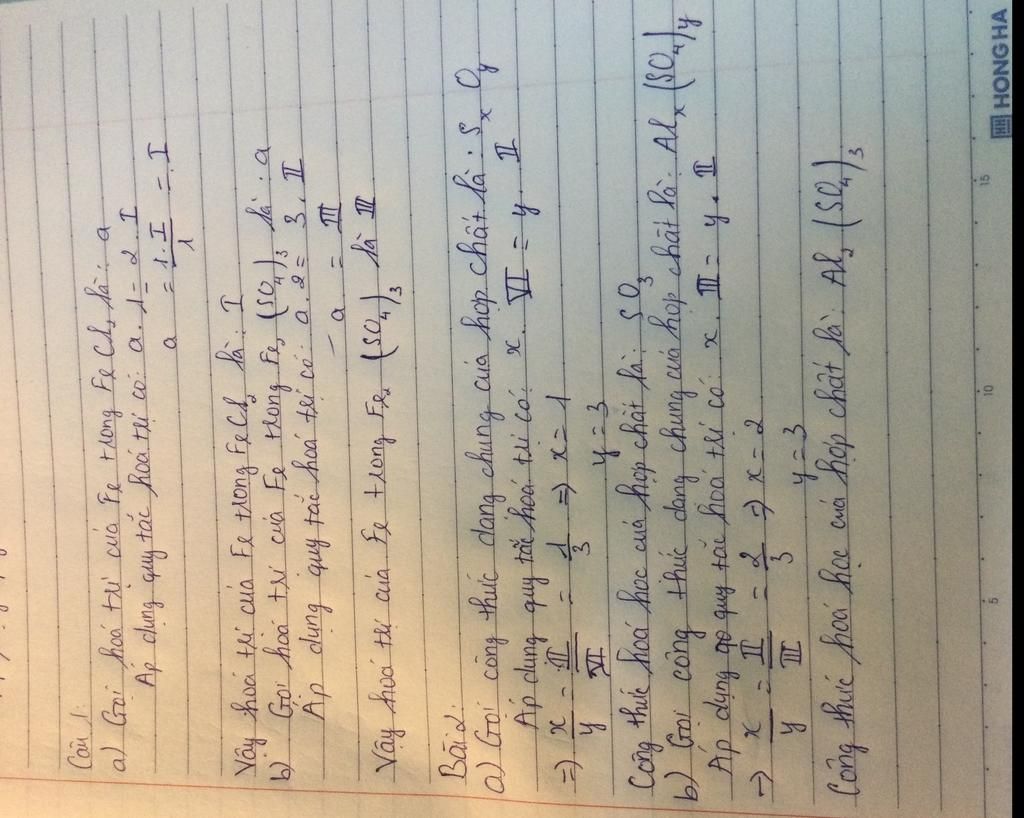 Câu 1:
a) Gọi hoá trị của Fe trong FeCl₂ là: a
Áp dụng quy tắc hoá trị có: a . 1 = 2 . I
a = 1.I/1 = I
Vậy hoá trị của Fe trong FeCl₂ là: I
b) Gọi hoá trị của Fe trong Fe₂(SO₄)₃ là: a
Áp dụng quy tắc hoá trị có: a . 2 = 3 . II
– a = III
Vậy hoá trị của Fe trong Fe₂(SO₄)₃ là III
Bài 2:
a) Gọi công thức dạng chung của hợp chất là: SₓOy
Áp dụng quy tắc hoá trị có: x . VI = y . II
=> x/y = II/VI = 1/3 => x = 1
y = 3
Công thức hoá học của hợp chất là: SO₃
b) Gọi công thức dạng chung của hợp chất là: Alₓ(SO₄)y
Áp dụng qo quy tắc hoá trị có: x . III = y . II
-> x/y = II/III = 2/3 => x = 2
y = 3
Công thức hoá học của hợp chất là: Al₂(SO₄)₃
5 10 15
HONG HA